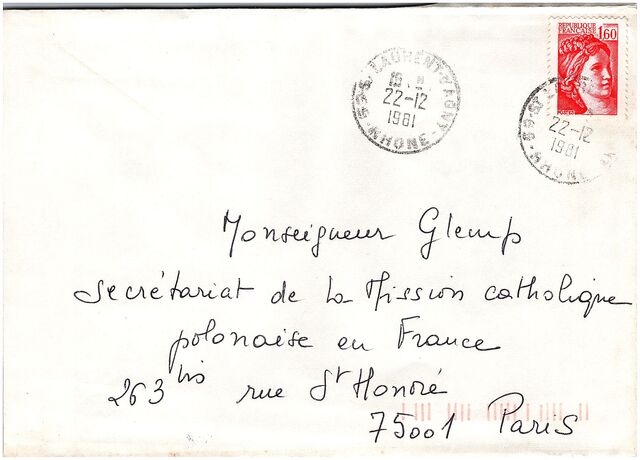 REPUBLIQUE
FRANÇAISE 1,60
69 ST LAURENT-D'AGNY
18 H
22-12
1981
RHONE
69 ST LAURE
22-12
1981
RHONE
Monseigneur Glemp
Secrétariat de la Mission catholique
polonaise en France
263 bis rue St Honoré
75001 Paris